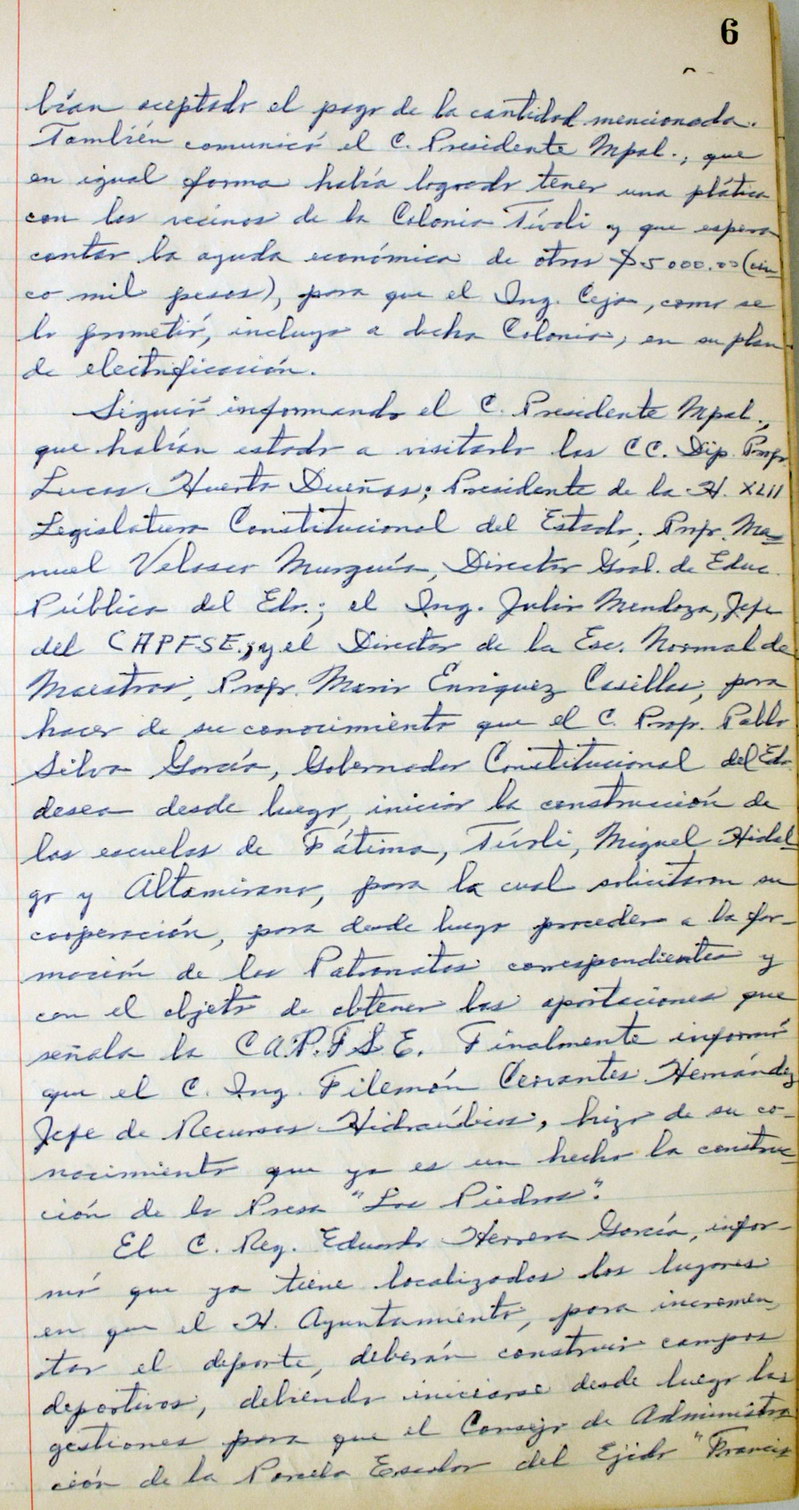 6
bían aceptado el pago de la cantidad mencionada.
También comunicó el C. Presidente Mpal., que
en igual forma había logrado tener una plática
con los vecinos de la Colonia Tívoli y que espera
contar la ayuda económica de otros $5 000.00 (cin-
co mil pesos), para que el Ing. Ceja, como se
lo prometió, incluya a dicha Colonia, en su plan
de electrificación.
Siguió informando el C. Presidente Mpal.,
que habían estado a visitarlo los CC. Dip. Profr.
Lucas Huerta Dueñas; Presidente de la H. XLII
Legislatura Constitucional del Estado; Profr. Ma-
nuel Velasco Murguía, Director Gral. de Educ.
Pública del Edo.; el Ing. Julio Mendoza, Jefe
del CAPFSE.; y el Director de la Esc. Normal de
Maestros, Profr. Mario Enriquez Casillas, para
hacer de su conocimiento que el C. Profr. Pablo
Silva García, Gobernador Constitucional del Edo.
desea desde luego, iniciar la construcción de
las escuelas de Fátima, Tívoli, Miguel Hidal-
go y Altamirano, para la cual solicitaron su
cooperación, para desde luego proceder a la for-
mación de los Patronatos correspondientes y
con el objeto de obtener las aportaciones que
señala la C.A.P.F.S.E. Finalmente informó
que el C. Ing. Filemón Cervantes Hernández
Jefe de Recursos Hidraúlicos, hizo de su co-
nocimiento que ya es un hecho la construc-
ción de la Presa "Las Piedras".
El C. Reg. Eduardo Herrera García, infor-
mó que ya tiene localizados los lugares
en que el H. Ayuntamiento, para incremen-
tar el deporte, deberán construir campos
deportivos, debiendo iniciarse desde luego las
gestiones para que el Consejo de Administra
ción de la Parcela Escolar del Ejido "Francis